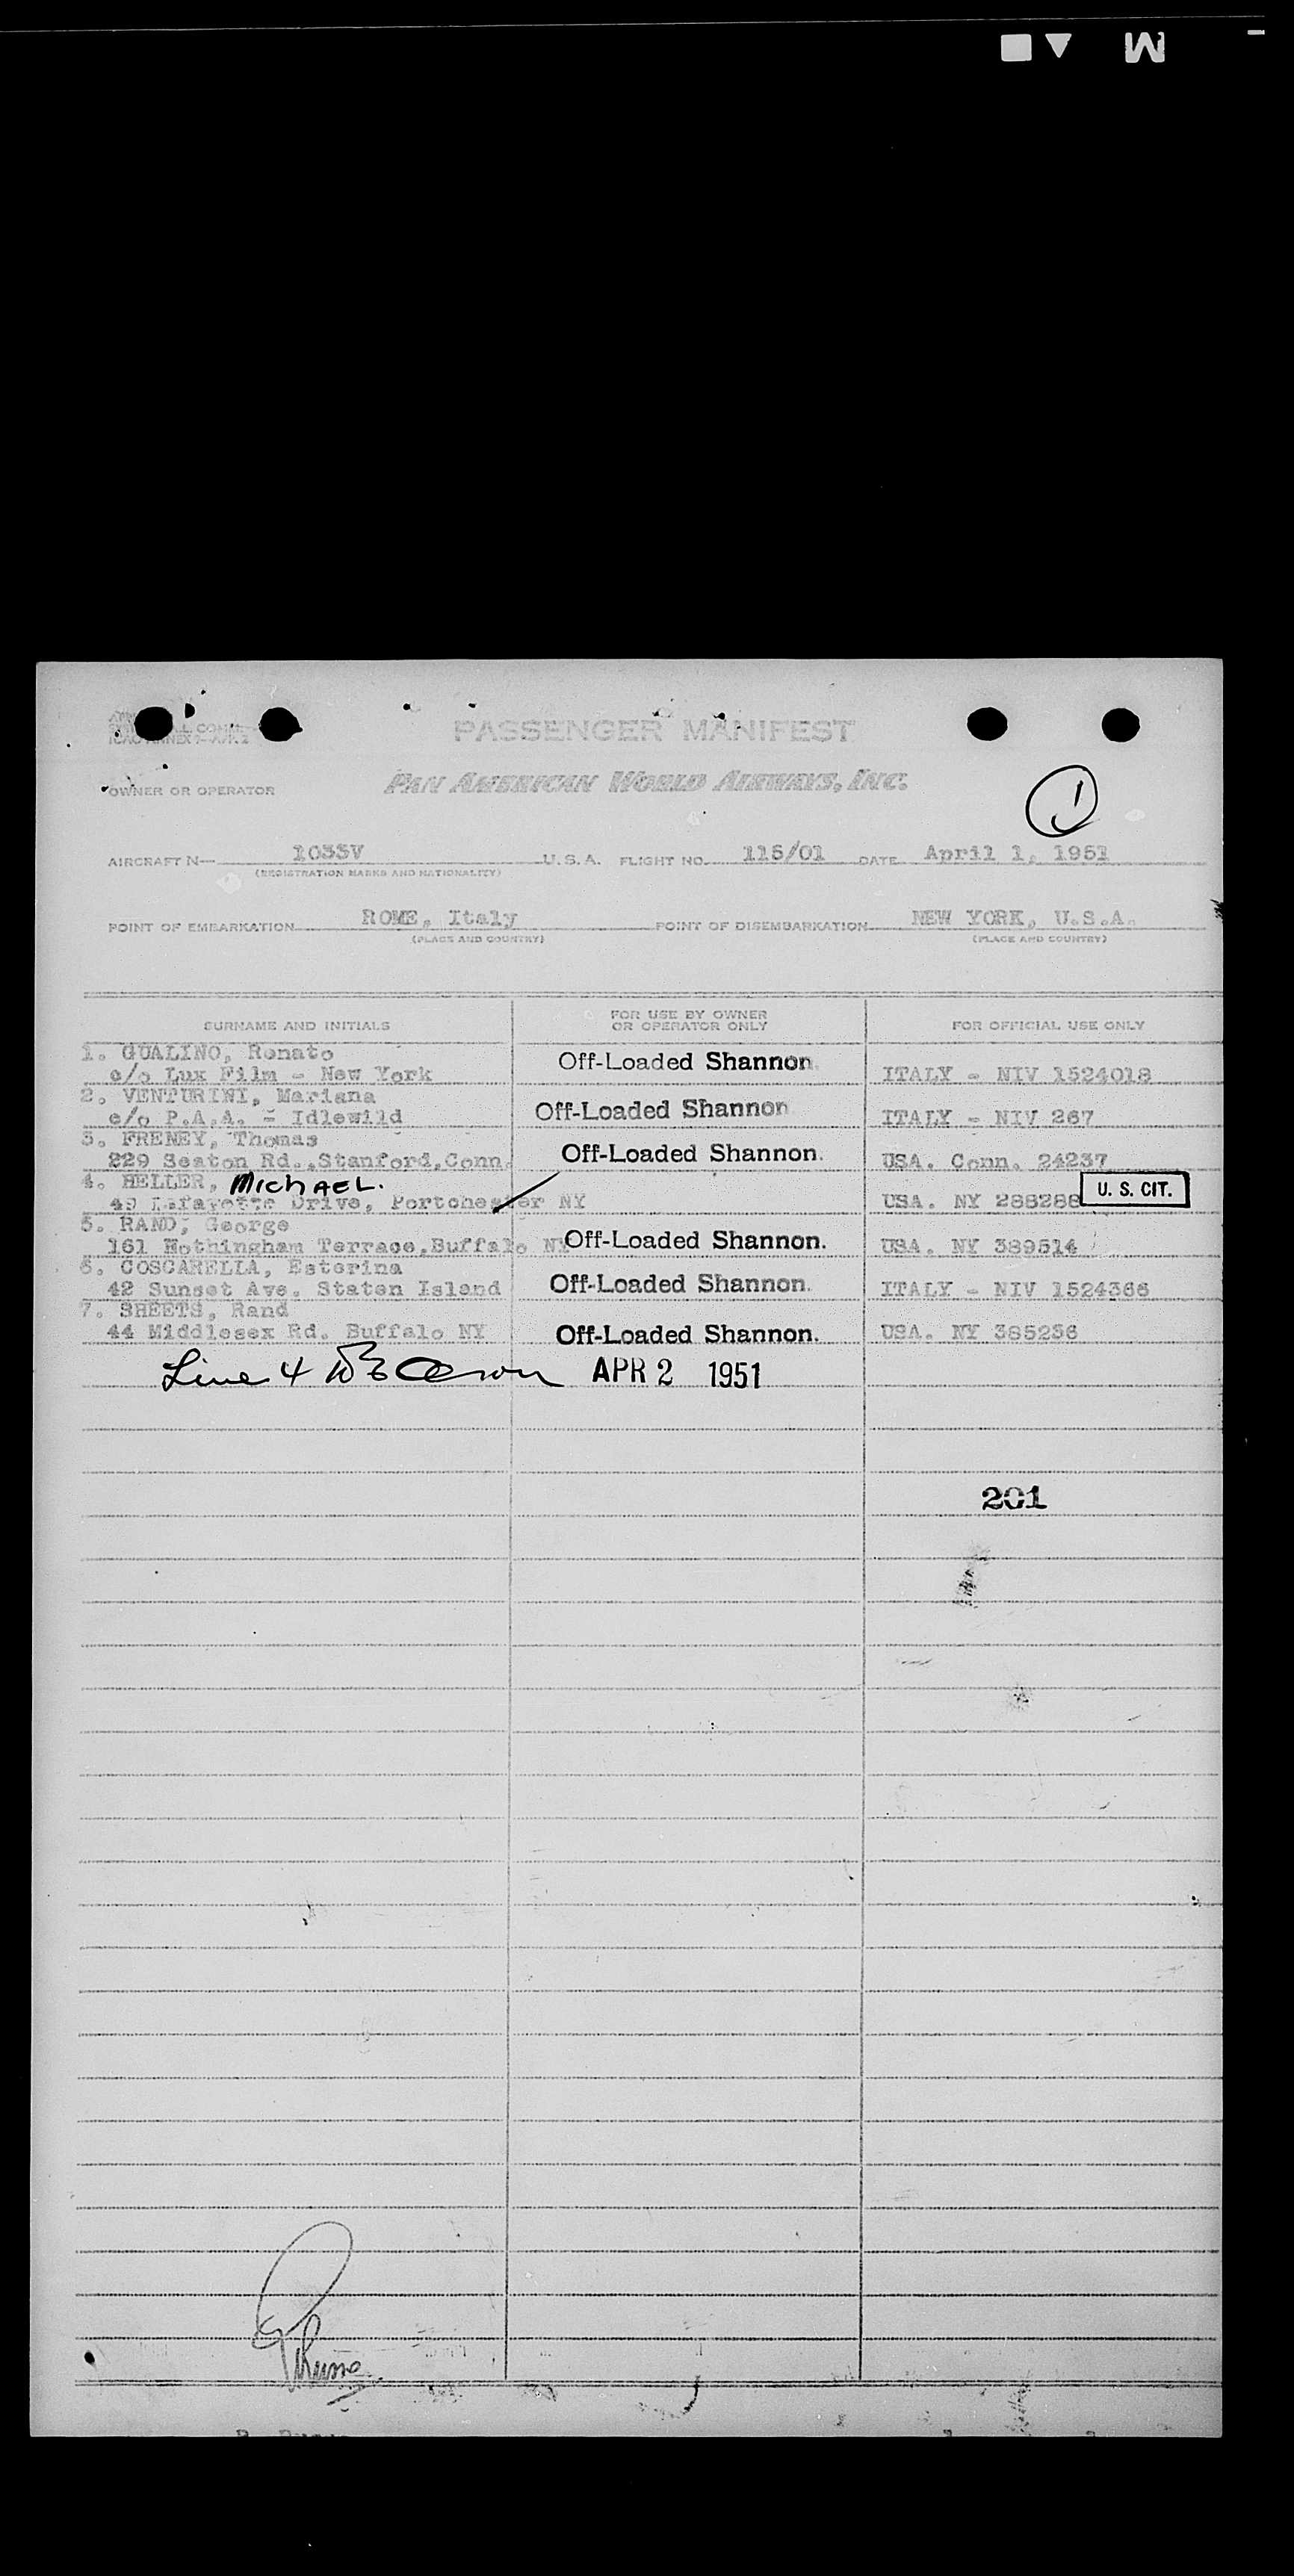 PASSENGER MANIFEST
OWNER OR OPERATOR PAN AMERICAN WORLD AIRWAYS, INC.
1
AIRCRAFT N— 1033V U.S.A. FLIGHT NO. 115/01 DATE April 1, 1951
(REGISTRATION MARKS AND NATIONALITY)
POINT OF EMBARKATION ROME, Italy POINT OF DISEMBARKATION NEW YORK, U.S.A.
(PLACE AND COUNTRY) (PLACE AND COUNTRY)
SURNAME AND INITIALS FOR USE BY OWNER OR OPERATOR ONLY FOR OFFICIAL USE ONLY
1. GUALINO, Renato Off-Loaded Shannon.
c/o Lux Film - New York ITALY - NIV 1524018
2. VENTURINI, Mariana Off-Loaded Shannon
c/o P.A.A. - Idlewild ITALY - NIV 267
3. FRENEY, Thomas Off-Loaded Shannon.
229 Seaton Rd.,Stanford,Conn. USA. Conn. 24237
4. HELLER, MICHAEL.
49 Lafayette Drive, Portchester NY USA. NY 288288 U. S. CIT.
5. RAND, George Off-Loaded Shannon.
161 Nothingham Terrace,Buffalo NY USA. NY 389514
6. COSCARELLA, Esterina Off-Loaded Shannon.
42 Sunset Ave. Staten Island ITALY - NIV 1524366
7. SHEETS, Rand Off-Loaded Shannon.
44 Middlesex Rd. Buffalo NY USA. NY 385236
Line 4 APR 2 1951
201